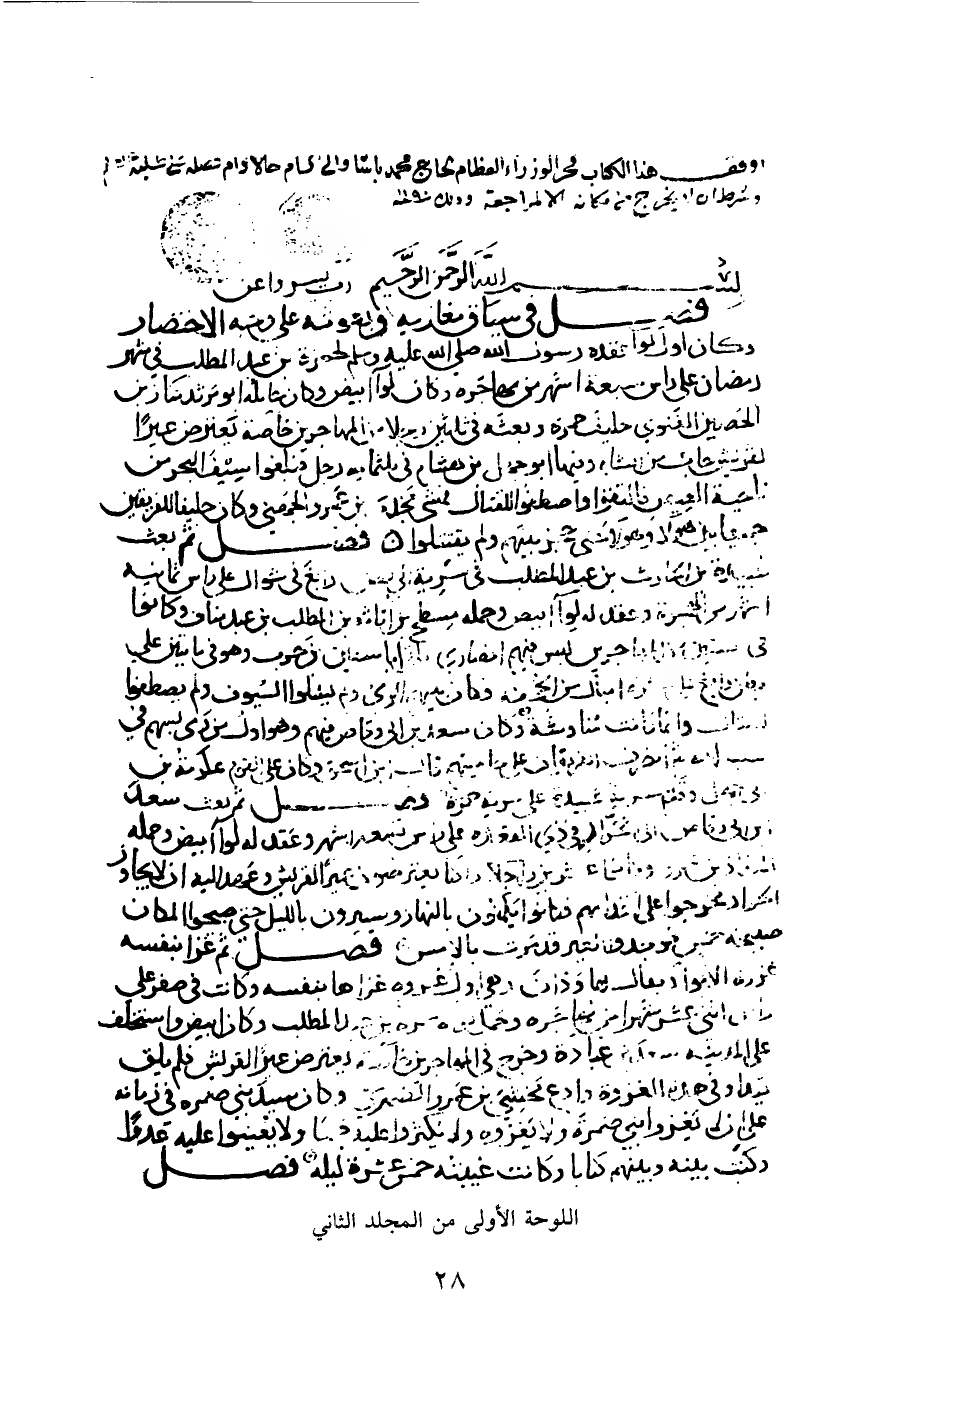 اوقف هذا الكتاب فخر الوزراء العظام الحاج محمد باشا والي شام حالا
وشرط ان لا يخرج من مكانه الا لمراجعة وذلك
بسم الله الرحمن الرحيم رب يسر واعن
فصل في سياق مغازيه وبعوثه على وجه الاختصار
وكان اول لوا عقده رسول الله صلى الله عليه وسلم لحمزة بن عبد المطلب في شهر
رمضان على راس سبعة اشهر من مهاجره وكان لوا ابيض وكان حامله ابو مرثد كناز بن
الحصين الغنوي حليف حمزة وبعثه في ثلثين رجلا من المهاجرين خاصة تعترض عيرا
لقريش جات من الشام وفيها ابو جهل بن هشام في ثلثمايه رجل فبلغوا سيف البحر من
ناحية العيص فالتقوا واصطفوا للقتال فمشى مجدي بن عمرو الجهني وكان حليفا للفريقين
جميعا بين هولا وهولا حتى حجز بينهم ولم يقتتلوا فصل ثم بعث
عبيدة بن الحارث بن عبد المطلب في سرية الى بطن رابغ في شوال على راس ثمانية
اشهر من الهجرة وعقد له لوا ابيض وحمله مسطح بن اثاثه بن المطلب بن عبد مناف وكانوا
في ستين من المهاجرين ليس فيهم انصاري فلقي ابا سفين بن حرب وهو في مايتين على
بطن رابغ على عشرة اميال من الجحفه وكان بينهم الرمي ولم يسلوا السيوف ولم يصطفوا
للقتال وانما كانت مناوشة وكان سعد بن ابي وقاص فيهم وهو اول من رمى بسهم في
سبيل الله ثم انصرف الفريقان على حاميتهم قال ابن اسحق وكان على القوم عكرمة بن
ابي جهل وقدم سرية عبيدة على سرية حمزة فصل ثم بعث سعد
بن ابي وقاص الى الخرار في ذي القعده على راس تسعة اشهر وعقد له لوا ابيض وحمله
المقداد بن عمرو وكانوا عشرين راجلا يعترضون عيرا لقريش وعهد اليه ان لا يجاوز
الخرار فخرجوا على اقدامهم فكانوا يكمنون بالنهار ويسيرون بالليل حتى صبحوا المكان
صبيحة خمس فوجدوا العير قد مرت بالامس فصل ثم غزا بنفسه
غزوة الابوا ويقال لها ودان وهي اول غزوه غزاها بنفسه وكانت في صفر على
راس اثنى عشر شهرا من مهاجره وحمل لواه حمزة بن عبد المطلب وكان ابيض واستخلف
على المدينه سعد بن عبادة وخرج في المهاجرين خاصة يعترض عيرا لقريش فلم يلق
كيدا وفي هذه الغزوة وادع مخشي بن عمرو الضمري وكان سيد بني ضمره في زمانه
على ان لا يغزو بني ضمرة ولا يغزوه ولا يكثروا عليه جمعا ولا يعينوا عليه عدوا
وكتب بينه وبينهم كتابا وكانت غيبته خمس عشرة ليلة فصل
اللوحة الأولى من المجلد الثاني
٢٨